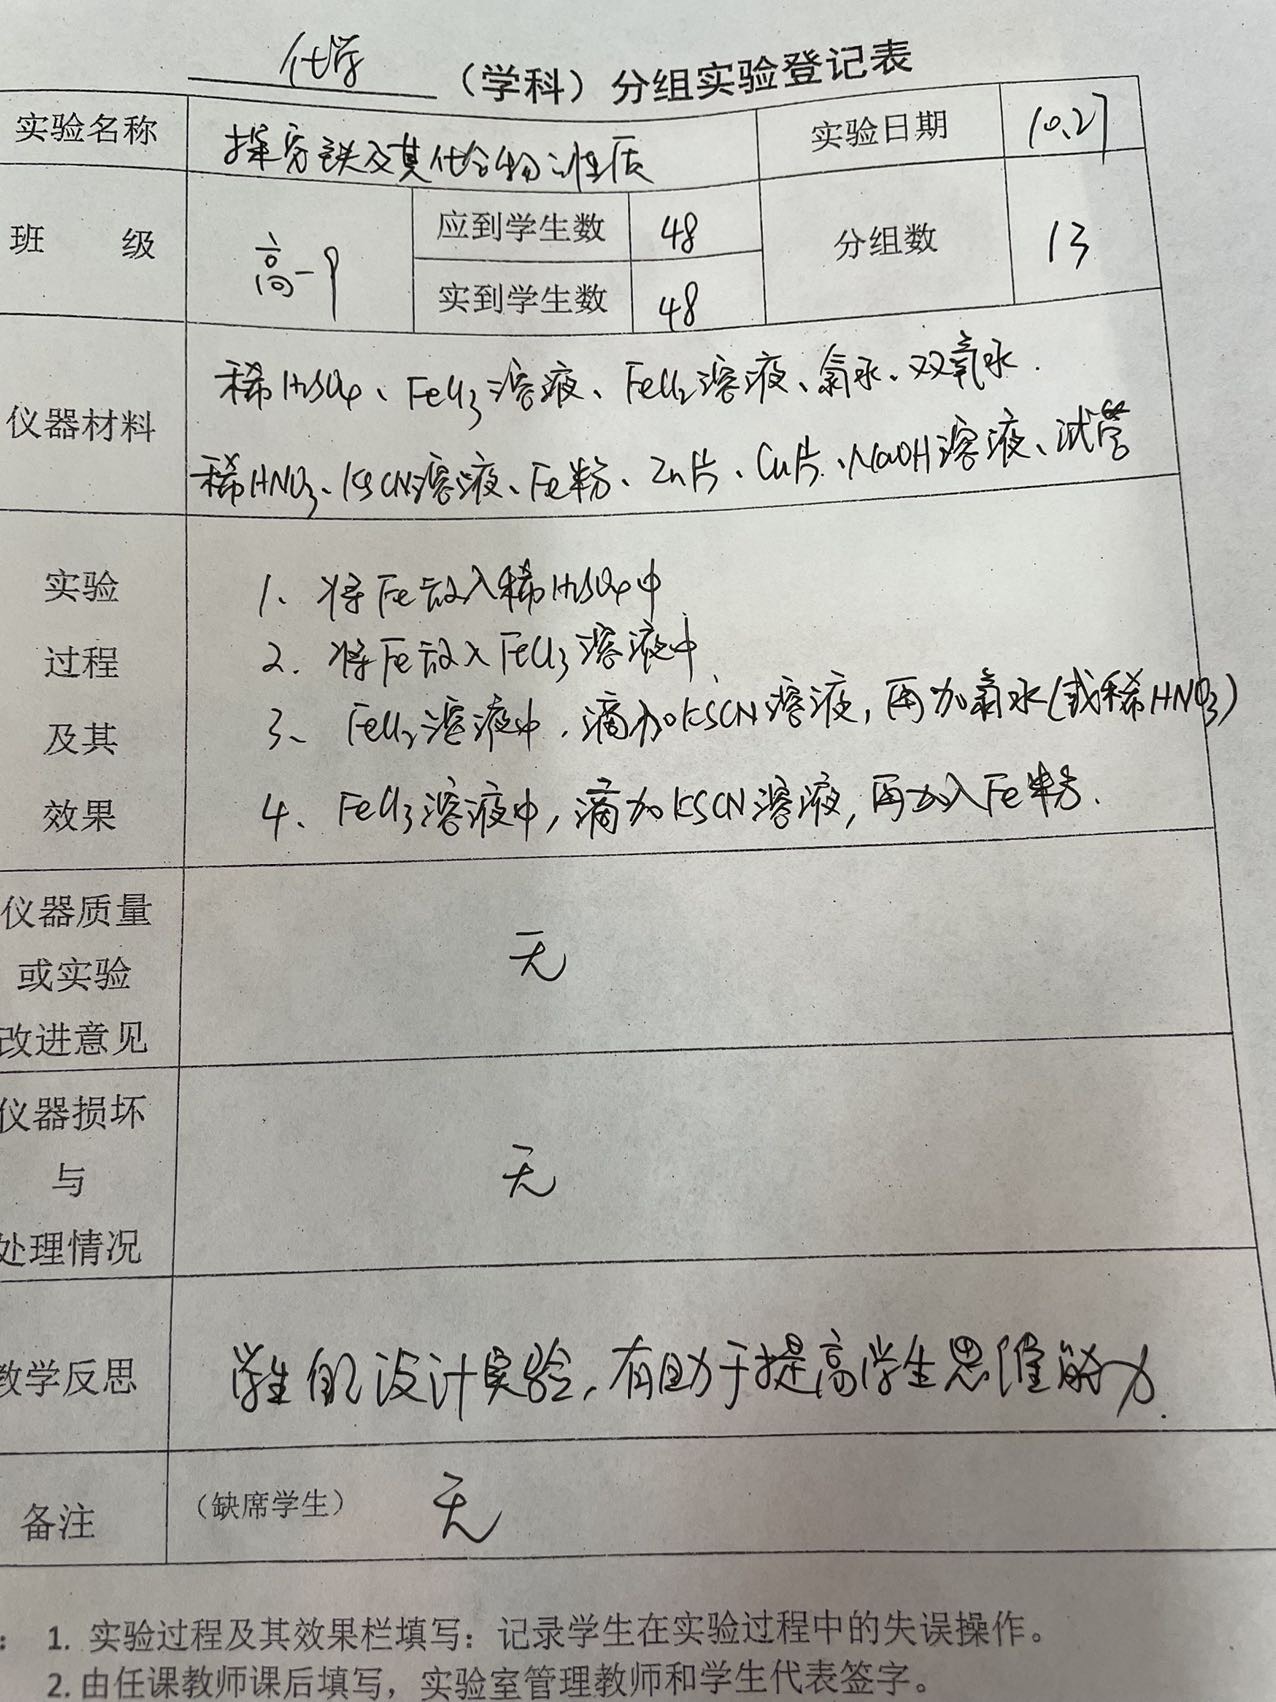 化学（学科）分组实验登记表
实验名称 探究铁及其化合物的性质 实验日期 10.27
班 级 高一9 应到学生数 48 分组数 13
实到学生数 48
仪器材料 稀H₂SO₄、FeCl₃溶液、FeCl₂溶液、氯水、双氧水.
稀HNO₃、KSCN溶液、Fe粉、Zn片、Cu片、NaOH溶液、试管
实验
过程
及其
效果
1、将Fe放入稀H₂SO₄中
2. 将Fe放入FeCl₃溶液中
3、FeCl₂溶液中，滴加KSCN溶液，再加氯水(或稀HNO₃)
4、FeCl₃溶液中，滴加KSCN溶液，再加入Fe粉.
仪器质量
或实验
改进意见
无
仪器损坏
与
处理情况
无
教学反思 学生自己设计实验，有助于提高学生思维能力.
备注 （缺席学生） 无
：1. 实验过程及其效果栏填写：记录学生在实验过程中的失误操作。
2. 由任课教师课后填写，实验室管理教师和学生代表签字。